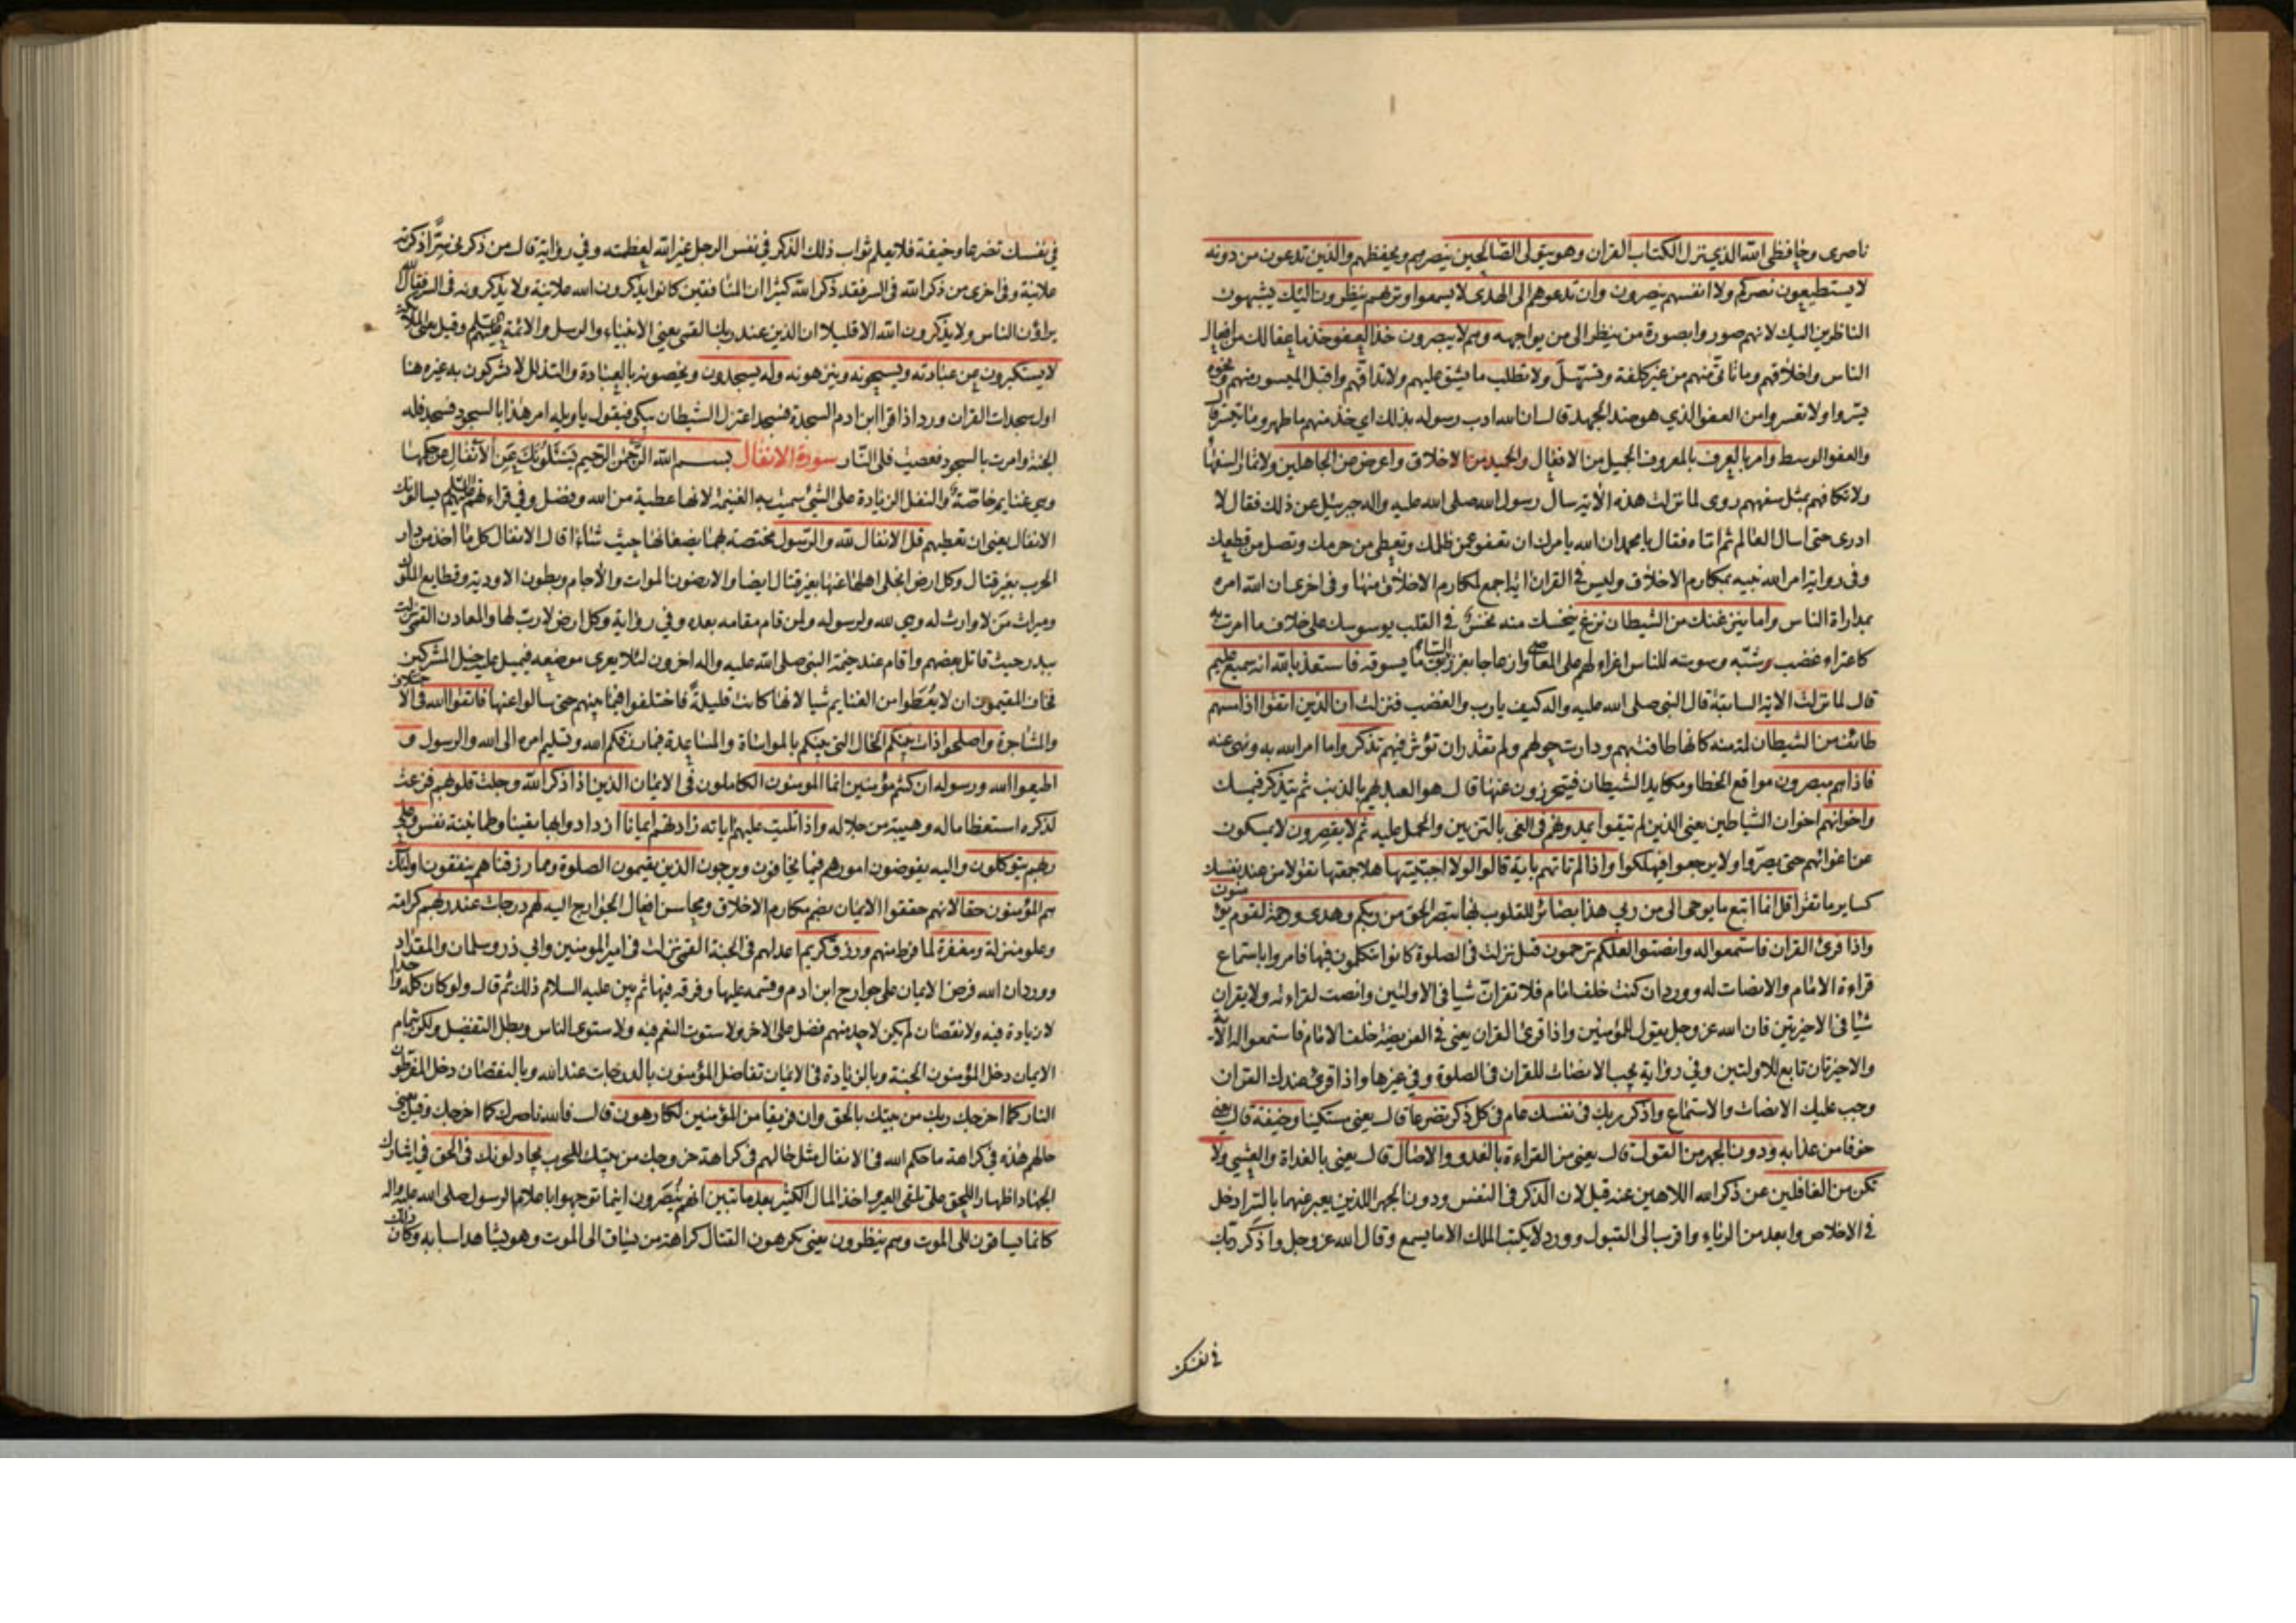 ناصرى وحافظى الله الذي نزل الكتاب القران وهو يتولى الصالحين ينصرهم ويحفظهم والذين تدعون من دونه
لا يستطيعون نصركم ولا انفسهم ينصرون وان تدعوهم الى الهدى لا يسمعوا وتراهم ينظرون اليك يشبهون
الناظرين اليك لانهم صوروا بصورة من ينظر الى من يواجهه وهم لا يبصرون خذ العفو خذ ما عفا لك من افعال
الناس واخلاقهم وما تأتى منهم من غير كلفة وتسهل ولا تطلب ما يشق عليهم ولا تداقهم واقبل الميسور منهم ونحوه
يسروا ولا تعسروا من العفو الذي هو ضد الجهد قال ان الله ادب رسوله بذلك اي خذ منهم ما ظهر وما تيسر قال
والعفو الوسط وامر بالعرف بالمعروف الجميل من الافعال والحميد من الاخلاق واعرض عن الجاهلين ولا تمار السفهاء
ولا تكافهم بمثل سفههم روى لما نزلت هذه الاية سال رسول الله صلى الله عليه واله جبرئيل عن ذلك فقال لا
ادرى حتى اسال العالم ثم اتاه فقال يا محمد ان الله يامرك ان تعفو عمن ظلمك وتعطى من حرمك وتصل من قطعك
وفى رواية امر الله نبيه بمكارم الاخلاق وليس في القران اية اجمع لمكارم الاخلاق منها وفى اخرى ان الله امره
بمداراة الناس واما ينزغنك من الشيطان نزغ ينخسك منه نخس في القلب يوسوسك على خلاف ما امرت به
كاعتراء غضب شبه وسوسته للناس اغراء لهم على المعاصى وازعاجا بغرز السائق ما يسوقه فاستعذ بالله انه سميع عليم
قال لما نزلت الاية السابقة قال النبى صلى الله عليه واله كيف يا رب والغضب فنزلت ان الذين اتقوا اذا مسهم
طائف من الشيطان لمة منه كانها طافت بهم ودارت حولهم ولم تقدر ان تؤثر فيهم تذكروا ما امر الله به ونهى عنه
فاذا هم مبصرون مواقع الخطا ومكايد الشيطان فيتحرزون عنها قال هو العبد يهم بالذنب ثم يتذكر فيمسك
واخوانهم اخوان الشياطين يعنى الذين لم يتقوا يمدونهم فى الغى بالتزيين والحمل عليه ثم لا يقصرون لا يمسكون
عن اغوائهم حتى يصروا ولا يرجعوا فيهلكوا واذا لم تاتهم باية قالوا لولا اجتبيتها هلا جمعتها تقولا من عند نفسك
كساير ما تقرا قل انما اتبع ما يوحى الى من ربي هذا بصائر للقلوب بها يبصر الحق من ربكم وهدى ورحمة لقوم يؤمنون
واذا قرئ القران فاستمعوا له وانصتوا لعلكم ترحمون قيل نزلت فى الصلوة كانوا يتكلمون فيها فامروا باستماع
قراءة الامام والانصات له وورد ان كنت خلف امام فلا تقران شيا فى الاولتين وانصت لقراءته ولا يقران
شيا فى الاخيرتين فان الله عز وجل يقول للمؤمنين واذا قرئ القران يعنى في الفريضة خلف الامام فاستمعوا له الآية
والاخيرتان تابع للاولتين وفي رواية يجب الانصات للقران فى الصلوة وفى غيرها واذا قرئ عندك القران
وجب عليك الانصات والاستماع واذكر ربك فى نفسك عام فى كل ذكر تضرعا قال يعنى مستكينا وخيفة قال يعنى
خوفا من عذابه ودون الجهر من القول قال يعنى من القراءة بالغدو والاصال قال يعنى بالغداة والعشى ولا
تكن من الغافلين عن ذكر الله اللاهين عنه قيل لان الذكر فى النفس ودون الجهر اللذين يعبر عنهما بالسر ادخل
في الاخلاص وابعد من الرياء واقرب الى القبول وورد لا يكتب الملك الا ما يسمع وقال الله عز وجل واذكر ربك
في نفسك
في نفسك تضرعا وخيفة فلا يعلم ثواب ذلك الذكر في نفس الرجل غير الله لعظمته وفي رواية قال من ذكرنى سرا ذكرته
علانية وفى اخرى من ذكر الله فى السر فقد ذكر الله كثيرا ان المنافقين كانوا يذكرون الله علانية ولا يذكرونه فى السر فقال الله
يراؤن الناس ولا يذكرون الله الا قليلا ان الذين عند ربك القمى يعنى الانبياء والرسل والائمة عليهم السلم وقيل يعنى الملائكة
لا يستكبرون عن عبادته ويسبحونه وينزهونه وله يسجدون ويخصونه بالعبادة والتذلل لا يشركون به غيره هنا
اول سجدات القران ورد اذا قرا ابن ادم السجدة فسجد اعتزل الشيطان يبكى فيقول يا ويله امر هذا بالسجود فسجد فله
الجنة وامرت بالسجود فعصيت فلى النار سورة الانفال بسم الله الرحمن الرحيم يسئلونك عن الانفال عن حكمها
وهى غنايم خاصة والنفل الزيادة على الشئ سميت به الغنيمة لانها عطية من الله وفضل وفي قراءتهم عليهم السلم يسالونك
الانفال يعنى ان تعطيهم قل الانفال لله والرسول مختصة بهما يضعانها حيث شاءا قال الانفال كل ما اخذ من دار
الحرب بغير قتال وكل ارض انجلى اهلها عنها بغير قتال ايضا والارضون الموات والآجام وبطون الاودية وقطايع الملوك
وميراث من لا وارث له وهى لله ولرسوله ولمن قام مقامه بعده وفي رواية وكل ارض لا رب لها والمعادن القمى نزلت
ببدر حيث قاتل بعضهم واقام عند خيمة النبى صلى الله عليه واله اخرون لئلا يعرى موضعه فيميل عليه خيل المشركين
فخاف المقيمون ان لا يعطوا من الغنايم شيا لانها كانت قليلة فاختلفوا فيما بينهم حتى سالوا عنها فاتقوا الله فى الاختلاف
والمشاجرة واصلحوا ذات بينكم الحال التى بينكم بالمواساة والمساعدة فيما رزقكم الله وتسليم امره الى الله والرسول و
اطيعوا الله ورسوله ان كنتم مؤمنين انما المومنون الكاملون فى الايمان الذين اذا ذكر الله وجلت قلوبهم فزعت
لذكره استعظاما له وهيبة من جلاله واذا تليت عليهم اياته زادتهم ايمانا ازدادوا بها يقينا وطمانينة نفس وعلى
ربهم يتوكلون واليه يفوضون امورهم فيما يخافون ويرجون الذين يقيمون الصلوة ومما رزقناهم ينفقون اولئك
هم المؤمنون حقا لانهم حققوا الايمان بضم مكارم الاخلاق ومحاسن افعال الجوارح اليه لهم درجات عند ربهم كرامة
وعلو منزلة ومغفرة لما فرط منهم ورزق كريم اعد لهم فى الجنة القمى نزلت فى امير المومنين وابي ذر وسلمان والمقداد
وورد ان الله فرض الايمان على جوارح ابن ادم وقسمه عليها وفرقه فيها ثم بين عليه السلام ذلك ثم قال ولو كان كله واحدا
لا زيادة فيه ولا نقصان لم يكن لاحد منهم فضل على الاخر ولاستوت النعم فيه ولاستوى الناس وبطل التفضيل ولكن بتمام
الايمان دخل المؤمنون الجنة وبالزيادة فى الايمان تفاضل المؤمنون بالدرجات عند الله وبالنقصان دخل المفرطون
النار كما اخرجك ربك من بيتك بالحق وان فريقا من المؤمنين لكارهون قال فالله ناصرك كما اخرجك وقيل يعنى
حالهم هذه في كراهة ما حكم الله فى الانفال مثل حالهم فى كراهة خروجك من بيتك للحرب يجادلونك فى الحق فى ايثارك
الجهاد اظهارا للحق على تلقى العير واخذ المال الكثير بعد ما تبين انهم ينصرون اينما توجهوا باعلام الرسول صلى الله عليه واله
كانما يساقون الى الموت وهم ينظرون يعنى يكرهون القتال كراهة من يساق الى الموت وهو يشاهد اسبابه وكان ذلك